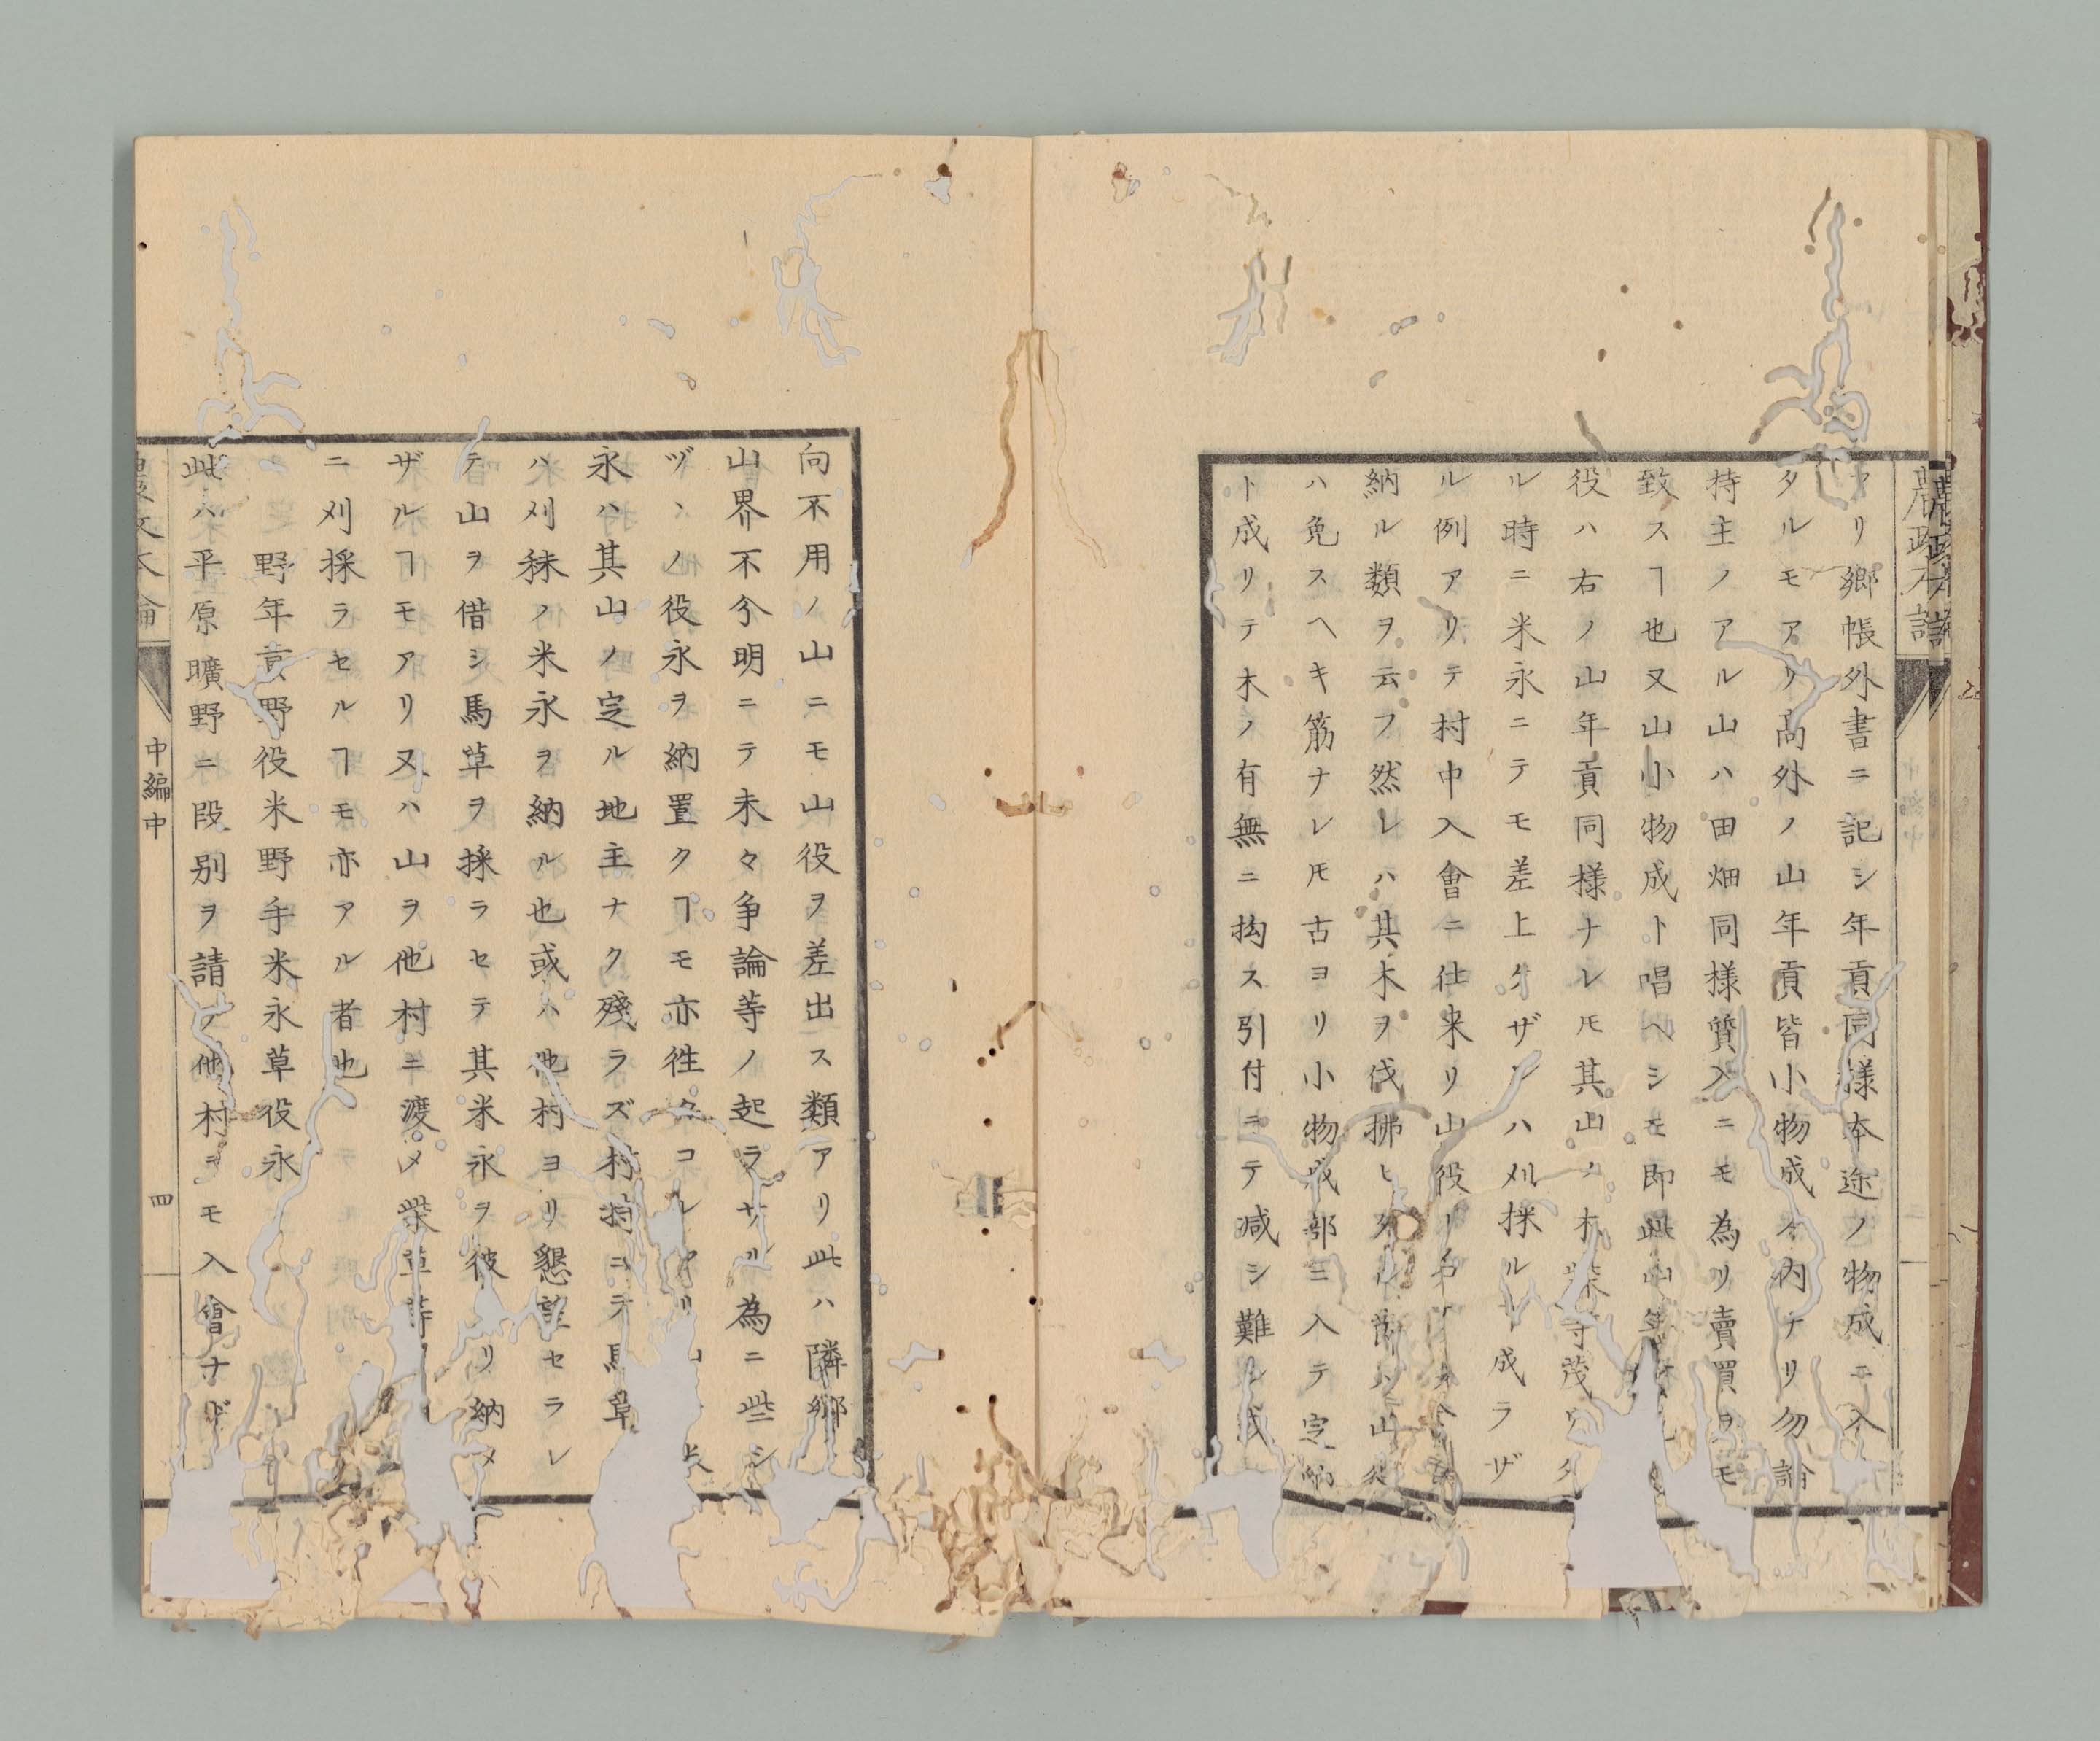 農政本論
アリ郷帳外書ニ記シ年貢同様本途ノ物成ニ入
タルモアリ高外ノ山年貢皆小物成ノ内ナリ勿論
持主ノアル山ハ田畑同様質入ニモ為リ賣買ヲモ
致スヿ也又山小物成ト唱ヘシモ即此山年
役ハ右ノ山年貢同様ナレ𪜈其山ノ木柴等茂
ル時ニ米永ニテモ差上ケザレハ刈採ルト成ラザ
ル例アリテ村中入會ニ仕来リ山役ト名
納ル類ヲ云フ然レハ其木ヲ伐拂ヒ山
ハ免スヘキ筋ナレ𪜈古ヨリ小物成部ニ入テ定納
ト成リテ木ノ有無ニ拘ス引付ニテ減シ難シ或
向不用ノ山ニモ山役ヲ差出ス類アリ此ハ隣郷
山界不分明ニテ未々争論等ノ起ラサル為ニ些シ
ヅヽノ役永ヲ納置クヿモ亦徃々コレアリ
永ハ其山ノ定ル地主ナク殘ラズ村持ニテ馬草
ハ刈秣ノ米永ヲ納ル也或ハ他村ヨリ懇望セラレ
テ山ヲ借シ馬草ヲ採ラセテ其米永ヲ彼ヨリ納メ
ザルヿモアリ又ハ山ヲ他村ニ渡メ柴草等
ニ刈採ラセルヿモ亦アル者也
野年貢野役米野手米永草役永
此ハ平原曠野ニ段別ヲ請テ他村ヲモ入會ナド
農政本論
中編中
四